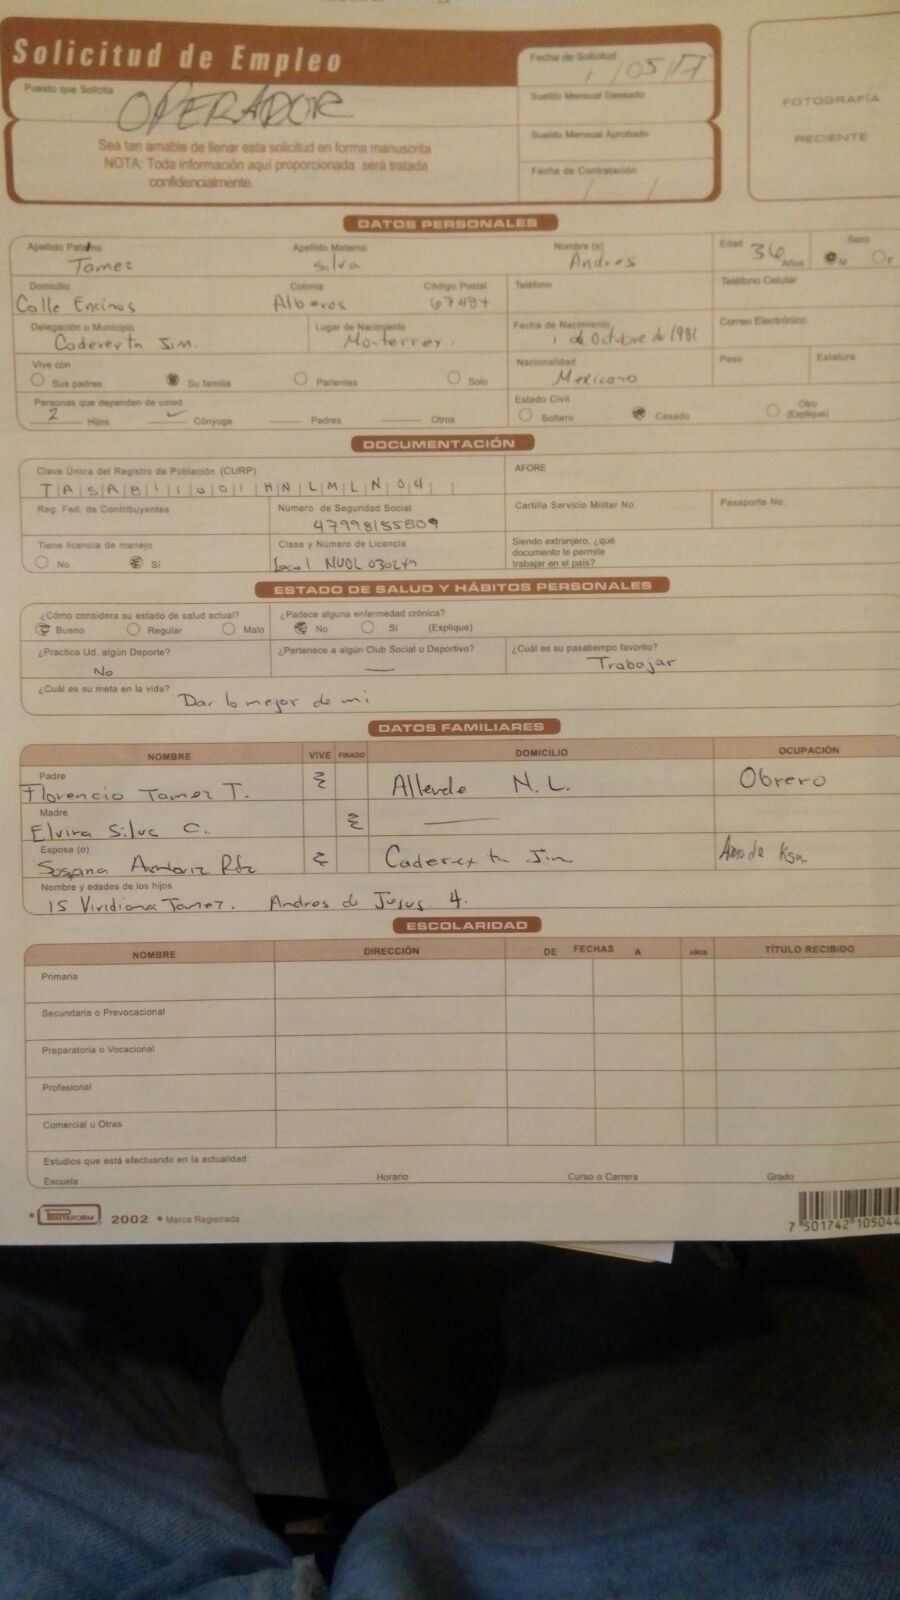 Solicitud de Empleo
Fecha de Solicitud
/ 05 / 17
FOTOGRAFÍA
RECIENTE
Puesto que Solicita
OPERADOR
Sueldo Mensual Deseado
Sea tan amable de llenar esta solicitud en forma manuscrita
NOTA: Toda información aquí proporcionada será tratada
confidencialmente.
Sueldo Mensual Aprobado
Fecha de Contratación
/ /
DATOS PERSONALES
Apellido Paterno Apellido Materno Nombre (s) Edad Sexo
Tamez Silva Andres 36 Años M F
Domicilio Colonia Código Postal Teléfono Teléfono Celular
Calle Encinos 67484
Delegación o Municipio Lugar de Nacimiento Fecha de Nacimiento Correo Electrónico
Cadereyta Jim. Monterrey. 1 de Octubre de 1981
Vive con Nacionalidad Peso Estatura
Sus padres Su familia Parientes Solo Mexicano
Personas que dependen de usted Estado Civil
2 Hijos Cónyuge Padres Otros Soltero Casado Otro (Explique)
DOCUMENTACIÓN
Clave Única del Registro de Población (CURP) AFORE
TASA811001HNLMLN04
Reg. Fed. de Contribuyentes Número de Seguridad Social Cartilla Servicio Militar No. Pasaporte No.
47998155809
Tiene licencia de manejo Clase y Número de Licencia Siendo extranjero, ¿qué
documento le permite
trabajar en el país?
No Sí
ESTADO DE SALUD Y HÁBITOS PERSONALES
¿Cómo considera su estado de salud actual? ¿Padece alguna enfermedad crónica?
Bueno Regular Malo No Sí (Explique)
¿Practica Ud. algún Deporte? ¿Pertenece a algún Club Social o Deportivo? ¿Cuál es su pasatiempo favorito?
No — Trabajar
¿Cuál es su meta en la vida?
Dar lo mejor de mi
DATOS FAMILIARES
NOMBRE VIVE FINADO DOMICILIO OCUPACIÓN
Padre
Florencio Tamez T. Allende N.L. Obrero
Madre
Elvira Silva C. —
Esposa (o)
Susana Cadereyta Jim Ama de Ksa
Nombre y edades de los hijos
15 Viridiana Tamez. Andres de Jesus 4.
ESCOLARIDAD
NOMBRE DIRECCIÓN DE FECHAS A AÑOS TÍTULO RECIBIDO
Primaria
Secundaria o Prevocacional
Preparatoria o Vocacional
Profesional
Comercial u Otras
Estudios que está efectuando en la actualidad:
Escuela Horario Curso o Carrera Grado
* PRINTAFORM 2002 * Marca Registrada
7 501742 105044